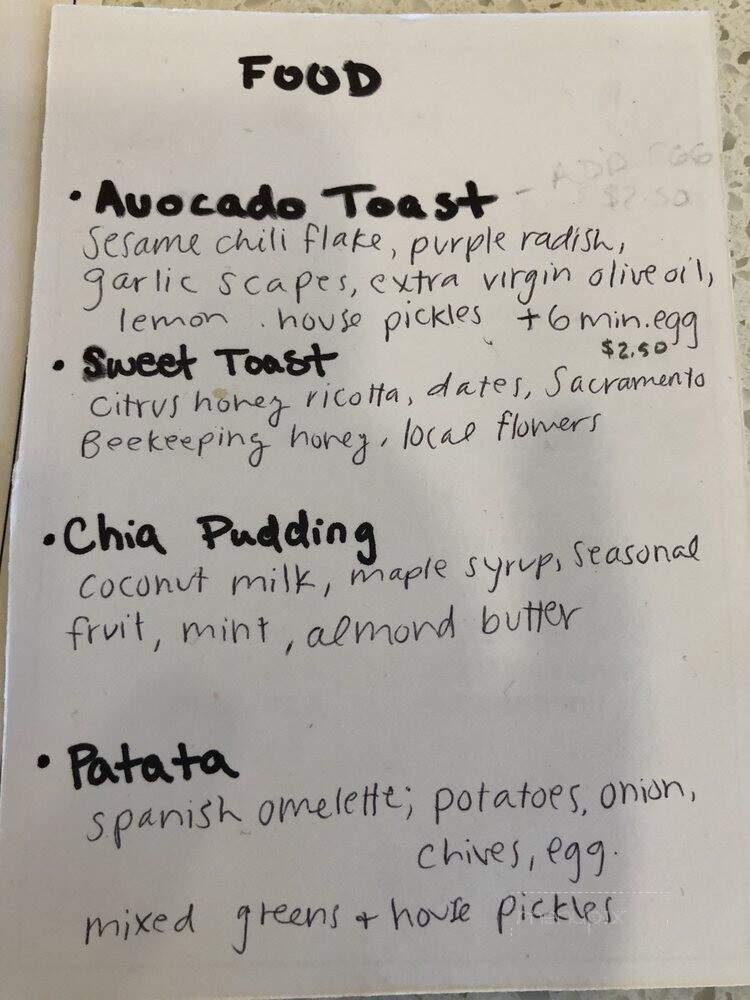 FOOD
• Avocado Toast - ADD EGG
$2.50
Sesame chili flake, purple radish,
garlic scapes, extra virgin olive oil,
lemon. house pickles + 6 min. egg
$2.50
• Sweet Toast
Citrus honey ricotta, dates, Sacramento
Beekeeping honey, local flowers
• Chia Pudding
coconut milk, maple syrup, seasonal
fruit, mint, almond butter
• Patata
spanish omelette; potatoes, onion,
chives, egg.
mixed greens + house pickles